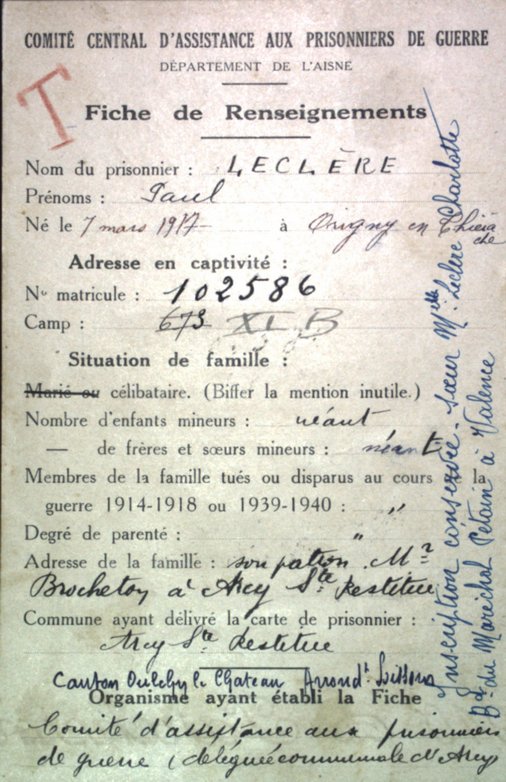 COMITÉ CENTRAL D'ASSISTANCE AUX PRISONNIERS DE GUERRE
DÉPARTEMENT DE L'AISNE
T
Fiche de Renseignements
Nom du prisonnier : LECLÈRE
Prénoms : Paul
Né le 7 mars 1917 à Origny en Thiérache
Adresse en captivité :
N° matricule : 102586
Camp : 673 XI B
Situation de famille :
Marié ou célibataire. (Biffer la mention inutile.)
Nombre d'enfants mineurs : néant
— de frères et sœurs mineurs : néant
Membres de la famille tués ou disparus au cours de la
guerre 1914-1918 ou 1939-1940 : "
Degré de parenté : "
Adresse de la famille : son patron Mr
Brocheton à Arcy Ste Restitue
Commune ayant délivré la carte de prisonnier :
Arcy Ste Restitue
Canton Oulchy le Chateau Arrondt Soissons
Organisme ayant établi la Fiche
Comité d'assistance aux prisonniers
de guerre (déléguée communale d'Arcy
Inscription conservée - sœur Melle Leclère Charlotte
Bd du Maréchal Pétain à Valence